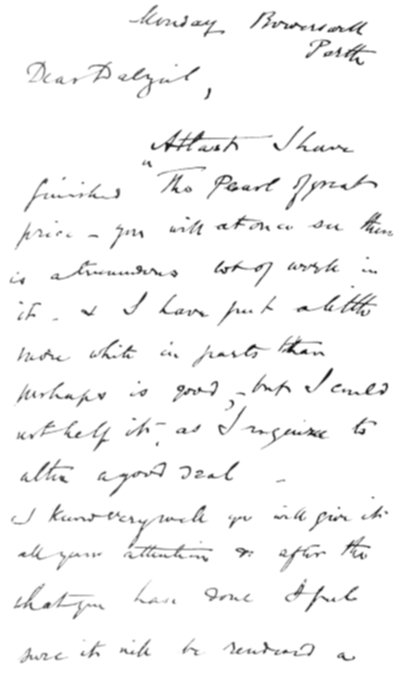 Monday Bowerswell
Perth
Dear Dalziel,
At last I have
finished "The Pearl of great
price - you will at once see there
is a tremendous lot of work in
it - & I have put a little
more white in parts than
perhaps is good, - but I could
not help it, as I required to
alter a good deal -
I know very well you will give it
all your attention & after the
what you have done I feel
sure it will be rendered a